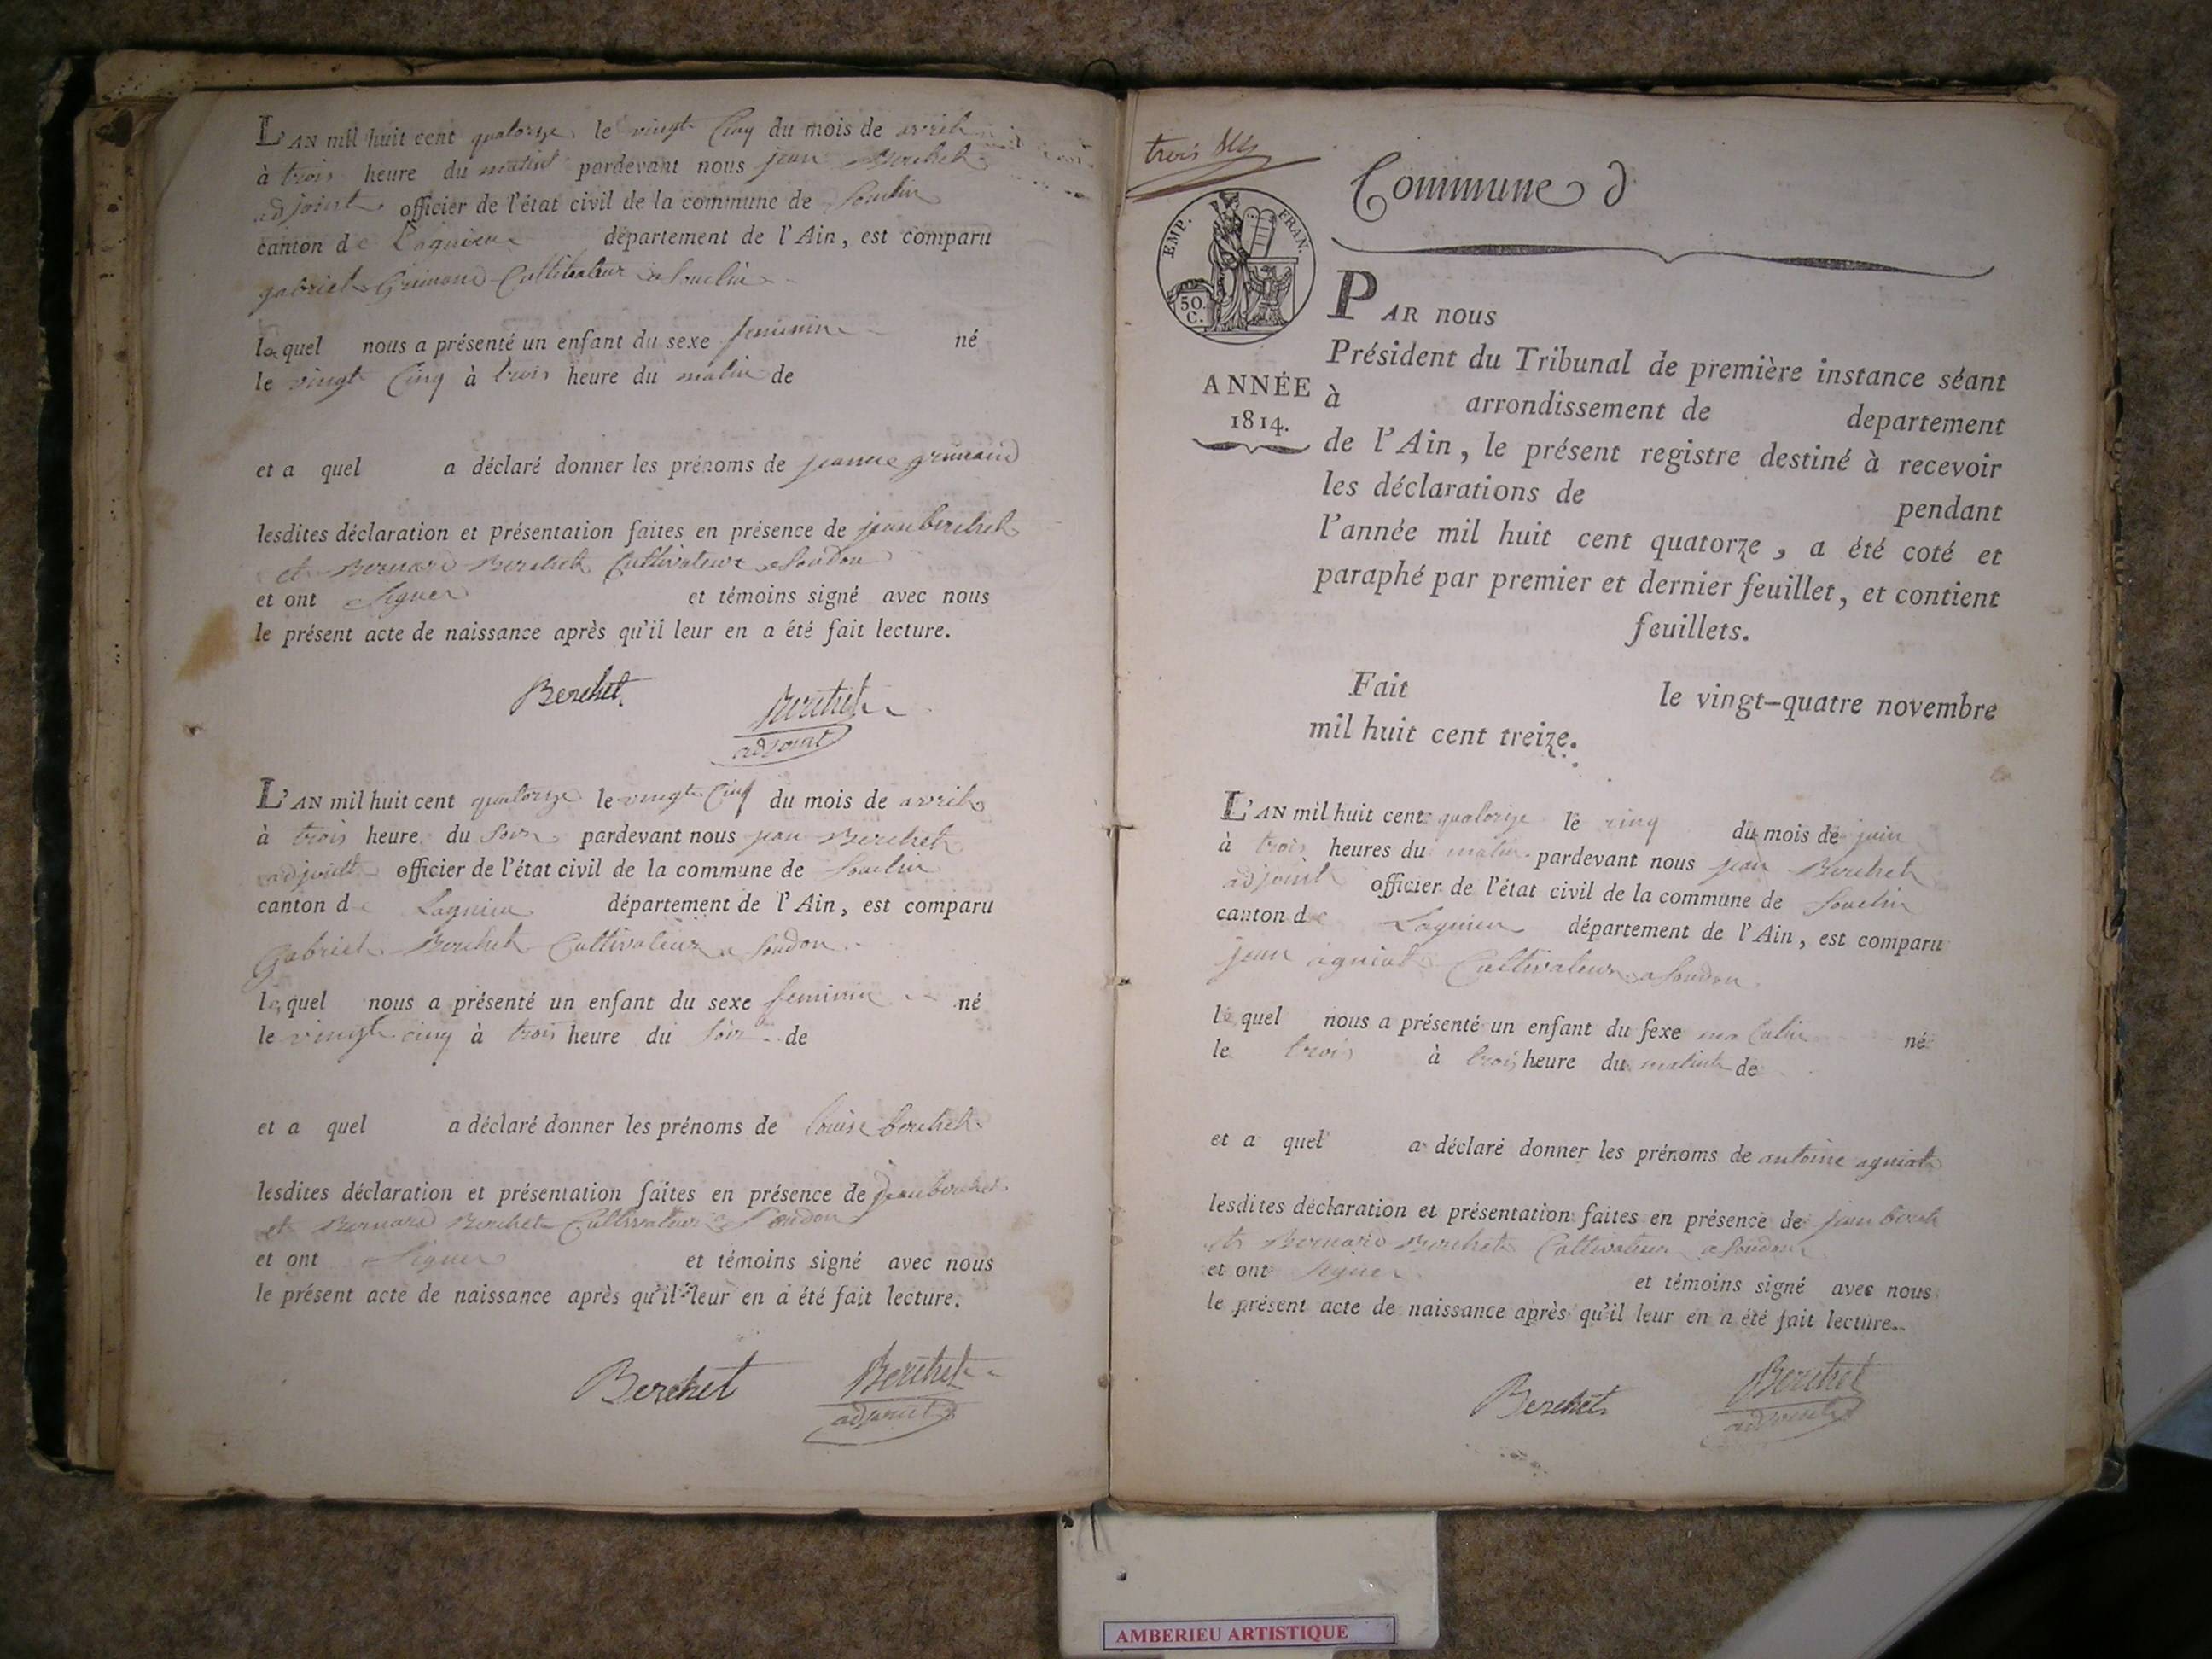 L'AN mil huit cent quatorze le vingt Cinq du mois de avril
à trois heure du matint pardevant nous jean Berchet
adjoint officier de l'état civil de la commune de Souclin
canton de Lagnieu département de l'Ain, est comparu
gabriel Grimand Cultivateur a Souclin
lequel nous a présenté un enfant du sexe feminin né
le vingt Cinq à trois heure du matin de
et a quel a déclaré donner les prénoms de jeanne grimand
lesdites déclaration et présentation faites en présence de jean berchet
et Bernard Berchet Cultivateur a Soudon
et ont Signer et témoins signé avec nous
le présent acte de naissance après qu'il leur en a été fait lecture.
Berchet Berchet
adjoint
L'AN mil huit cent quatorze le vingt Cinq du mois de avril
à trois heure du Soir pardevant nous jean Berchet
adjoint officier de l'état civil de la commune de Souclin
canton de Lagnieu département de l'Ain, est comparu
Gabriel Berchet Cultivateur a Soudon
lequel nous a présenté un enfant du sexe feminin né
le vingt cinq à trois heure du Soir de
et a quel a déclaré donner les prénoms de louise berchet
lesdites déclaration et présentation faites en présence de jean berchet
et Bernard Berchet Cultivateur a Soudon
et ont Signer et témoins signé avec nous
le présent acte de naissance après qu'il leur en a été fait lecture.
Berchet Berchet
adjoint
trois
Commune d
EMP. FRAN.
50.
C.
ANNÉE
1814.
PAR nous
Président du Tribunal de première instance séant
à arrondissement de departement
de l'Ain, le présent registre destiné à recevoir
les déclarations de pendant
l'année mil huit cent quatorze, a été coté et
paraphé par premier et dernier feuillet, et contient
feuillets.
Fait le vingt-quatre novembre
mil huit cent treize.
L'AN mil huit cent quatorze le cinq du mois de juin
à trois heures du matin pardevant nous jean Berchet
adjoint officier de l'état civil de la commune de Souclin
canton de Lagnieu département de l'Ain, est comparu
jean agniat Cultivateur a Soudon
lequel nous a présenté un enfant du sexe maculin né
le trois à trois heure du matint de
et a quel a déclaré donner les prénoms de antoine agniat
lesdites déclaration et présentation faites en présence de jean
et Bernard Berchet Cultivateur a Soudon
et ont signer et témoins signé avec nous
le présent acte de naissance après qu'il leur en a été fait lecture.
Berchet Berchet
adjoint
AMBERIEU ARTISTIQUE